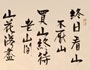 终日看山
不厭山
買山终待
老山间
山花落盡